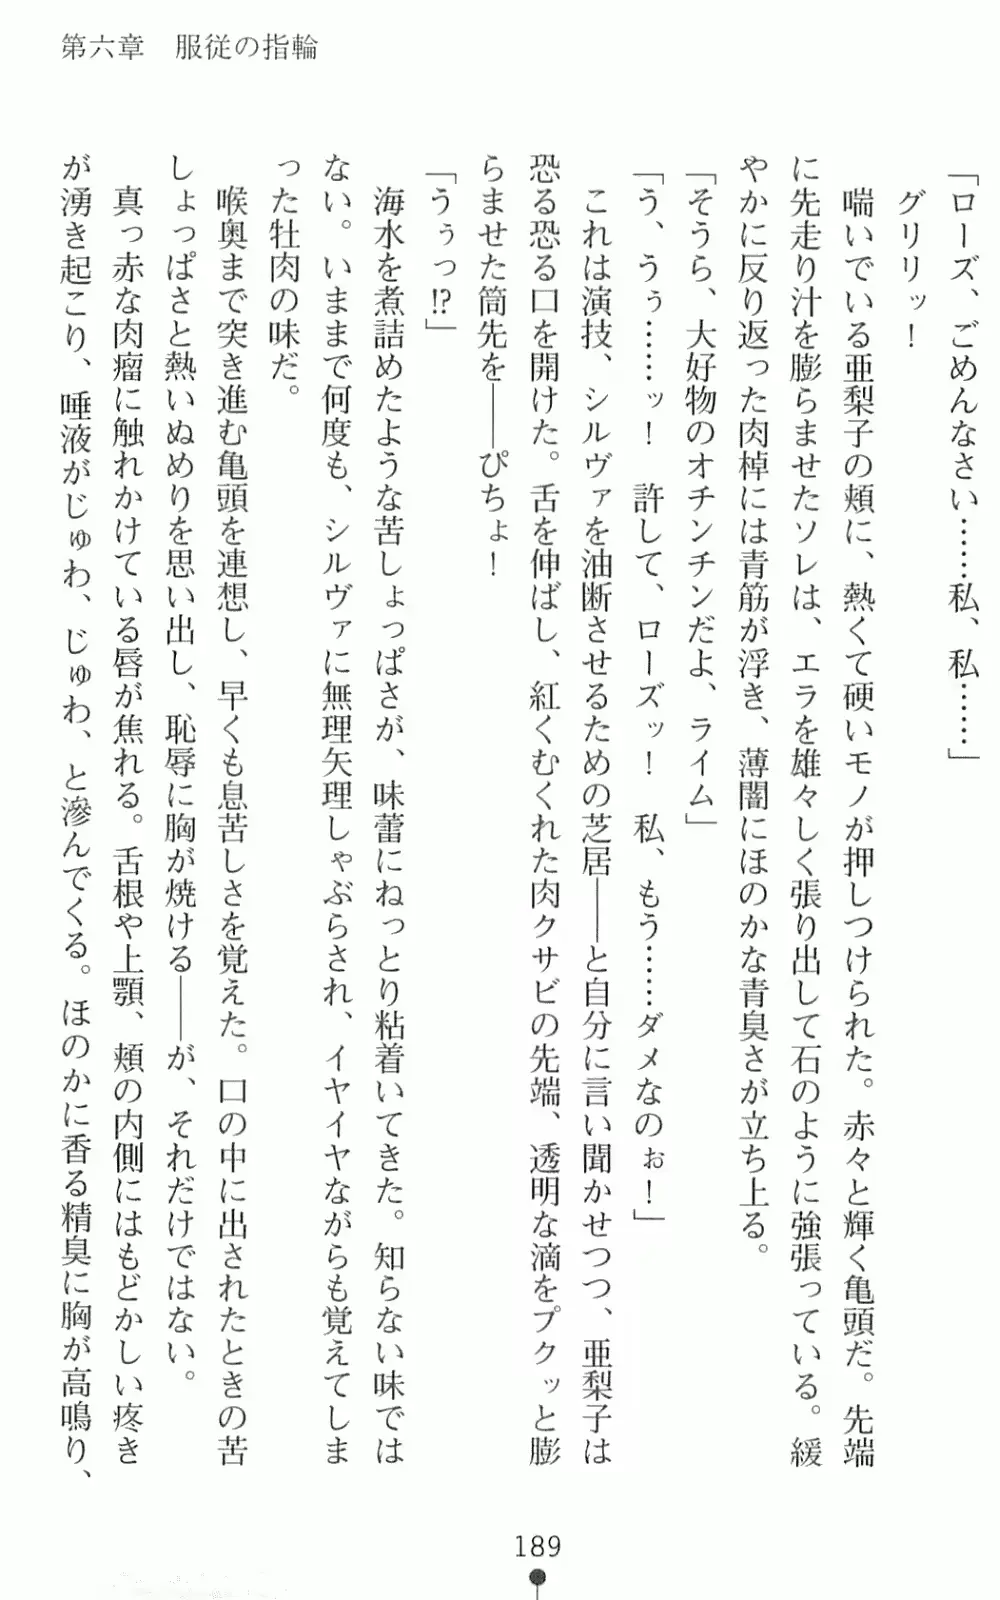 第六章　服従の指輪
「ローズ、ごめんなさい……私、私……」
グリリッ！
喘いでいる亜梨子の頬に、熱くて硬いモノが押しつけられた。赤々と輝く亀頭だ。先端
に先走り汁を膨らませたソレは、エラを雄々しく張り出して石のように強張っている。緩
やかに反り返った肉棹には青筋が浮き、薄闇にほのかな青臭さが立ち上る。
「そうら、大好物のオチンチンだよ、ライム」
「う、うぅ……ッ！　許して、ローズッ！　私、もう……ダメなのぉ！」
これは演技、シルヴァを油断させるための芝居――と自分に言い聞かせつつ、亜梨子は
恐る恐る口を開けた。舌を伸ばし、紅くむくれた肉クサビの先端、透明な滴をプクッと膨
らませた筒先を――ぴちょ！
「うぅっ⁉」
海水を煮詰めたような苦しょっぱさが、味蕾にねっとり粘着いてきた。知らない味では
ない。いままで何度も、シルヴァに無理矢理しゃぶらされ、イヤイヤながらも覚えてしま
った牡肉の味だ。
喉奥まで突き進む亀頭を連想し、早くも息苦しさを覚えた。口の中に出されたときの苦
しょっぱさと熱いぬめりを思い出し、恥辱に胸が焼ける――が、それだけではない。
真っ赤な肉瘤に触れかけている唇が焦れる。舌根や上顎、頬の内側にはもどかしい疼き
が湧き起こり、唾液がじゅわ、じゅわ、と滲んでくる。ほのかに香る精臭に胸が高鳴り、
189